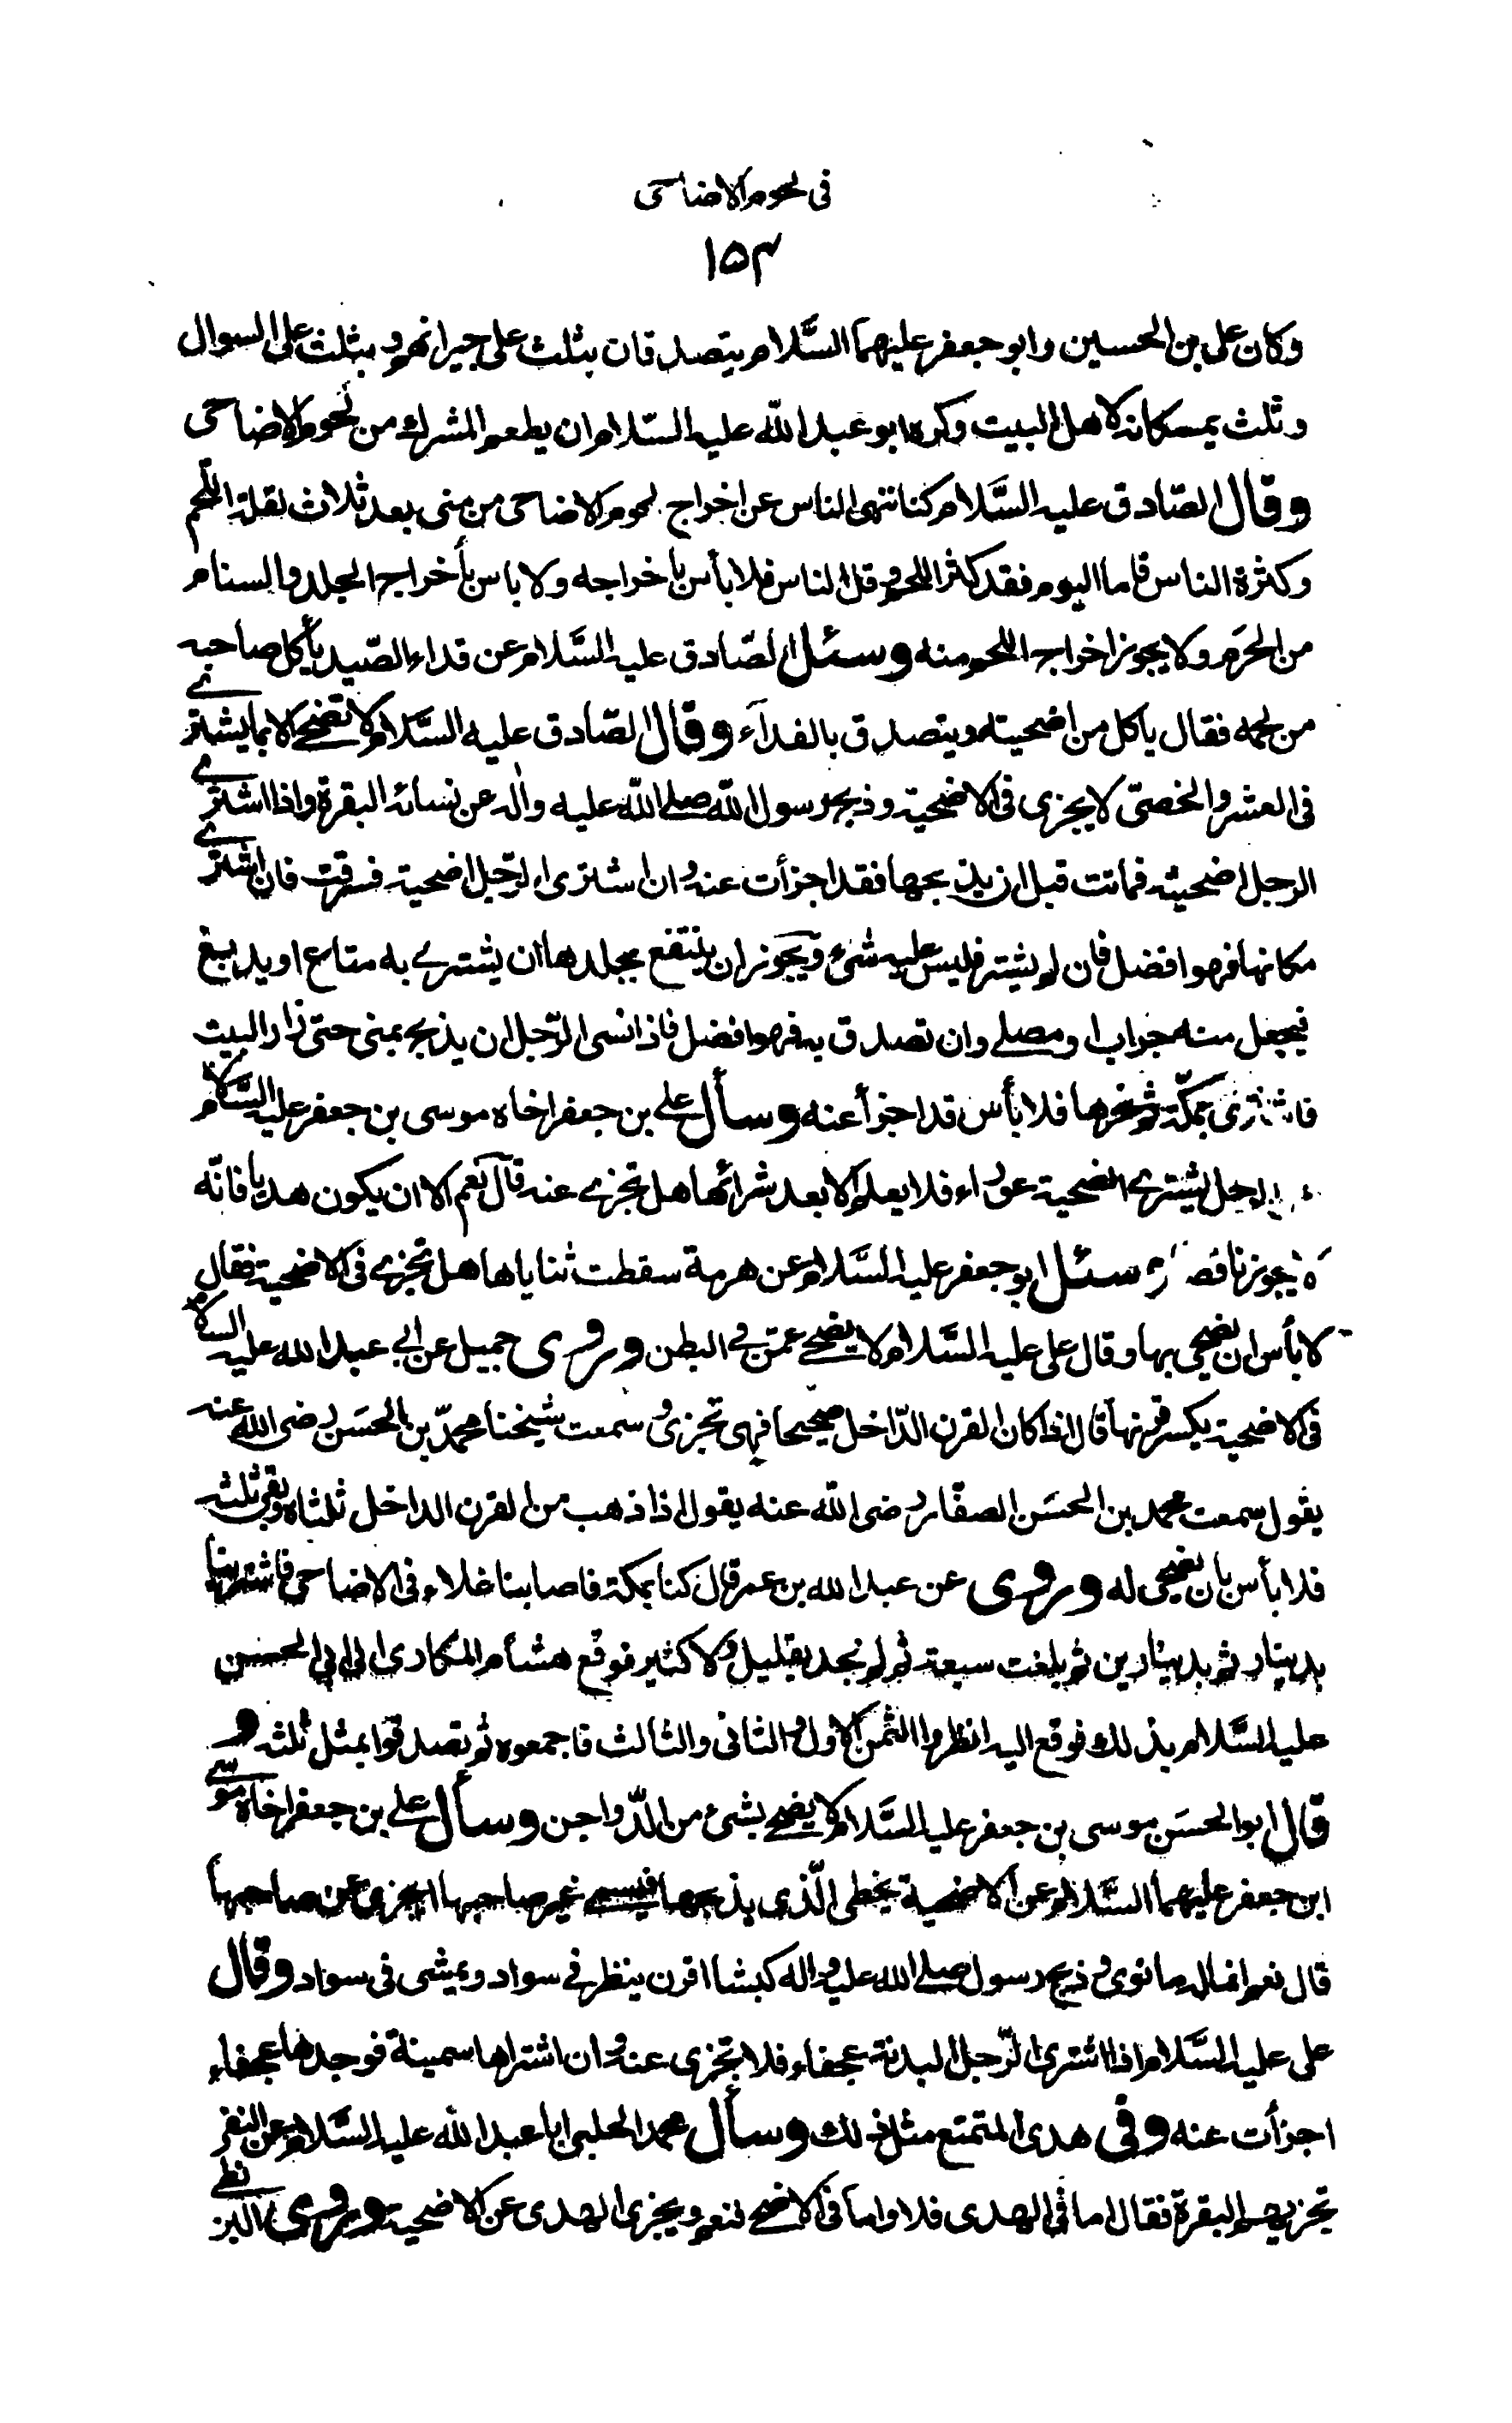 في لحوم الاضاحي
١٥٣
وكان علي بن الحسين وابو جعفر عليهما السَّلام يتصدقان بثلث على جيرانهم و بثلث على السوال
وثلث يمسكانه لاهل البيت وكره ابو عبد الله عليه السّلام ان يطعم المشرك من لحوم الاضاحي
وقال الصّادق عليه السَّلام كنا ننهى الناس عن اخراج لحوم الاضاحي من منى بعد ثلاث لقلة اللحم
وكثرة الناس فاما اليوم فقد كثر اللحم و قل الناس فلا بأس باخراجه ولا باس بأخراج الجلد والسنام
من الحَرَم ولا يجوز اخراج اللحم منه وسئل الصّادق عليه السَّلام عن فداء الصّيد يأكل صاحبه
من لحمه فقال ياكل من اضحيته ويتصدق بالفدآء وقال الصّادق عليه السَّلام لا تضحي الا بما يشترى
في العشر والخصيّ لا يجزى في الاضحية وذبح رسول الله صلى الله عليه واله عن نسائه البقرة واذا اشترى
الرجل اضحيته فماتت قبل ان يذبحها فقد اجزأت عنه و ان اشترى الرّجل اضحية فسرقت فان اشترى
مكانها فهو افضل فان لم يشتر فليس عليه شئ و يجوز ان ينتفع بجلدها ان يشترى به متاع او يدبغ
فيجعل منه جراب او مصلى وان تصدق به فهو افضل فاذا نسى الرّجل ان يذبح بمنى حتى زار البيت
فاشترى بمكّة ثم نحرها فلا بأس قد اجزأ عنه وسأل علي بن جعفر اخاه موسى بن جعفر عليه السَّلام
الرجل يشترى الضحية عوراء فلا يعلم الا بعد شرائها هل تجزى عنه قال نعم الا ان يكون هديا فانّه
لا يجوز ناقصا وسئل ابو جعفر عليه السَّلام عن هرمة سقطت ثناياها هل تجزى في الاضحية فقال
لا بأس ان يضحى بها وقال علي عليه السَّلام لا يضحى عمّن في البطن وروى جميل عن ابي عبد الله عليه السلام
في الاضحية يكسر قرنها قال اذا كان القرن الدّاخل صحيحا فهى تجزى و سمعت شيخنا محمّد بن الحسَن رضى الله عنه
يقول سمعت محمد بن الحسَن الصفّار رضى الله عنه يقول اذا ذهب من القرن الداخل ثلثاه وبقى ثلثه
فلا بأس بان يضحى له وروى عن عبد الله بن عمر قال كنا بمكة فاصابنا غلاء في الاضاحى فاشترينا
بدينار ثم بدينارين ثم بلغت سبعة ثم لم نجد بقليل ولا كثير فوقع هشام المكارى الى ابي الحسن
عليه السَّلام بذلك فوقع اليه انظروا الثمن الاول و الثانى والثالث فاجمعوه ثم تصدقوا بمثل ثلثه و
قال ابو الحسَن موسى بن جعفر عليه السَّلام لا يضحى بشئ من الدّواجن وسأل علي بن جعفر اخاه موسى
ابن جعفر عليهما السَّلام عن الاضحية يخطى الّذى يذبحها فيسمى غير صاحبها اتجزى عن صاحبها
قال نعم انما له ما نوى و ذبح رسول صلى الله عليه واله كبشا اقرن ينظر في سواد ويمشى في سواد وقال
على عليه السَّلام اذا اشترى الرّجل البدنة عجفاء فلا تجزى عنه و ان اشتراها سمينة فوجدها عجفاء
اجزأت عنه وفى هدى المتمتع مثل ذلك وسأل محمد الحلبي ابا عبد الله عليه السَّلام عن النفر
تجزيهم البقرة فقال اما في الهدى فلا واما في الاضحى فنعم و يجزى الهدى عن الاضحية وروى البزنطى